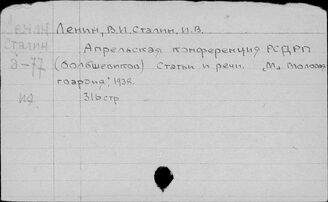 Ленин, В.И. Сталин, И.В.
Сталин
Апрельская конференция РСДРП
а-77
(большевиков) Статьи и речи. "М. Молодая
гвардия", 1938.
316 стр